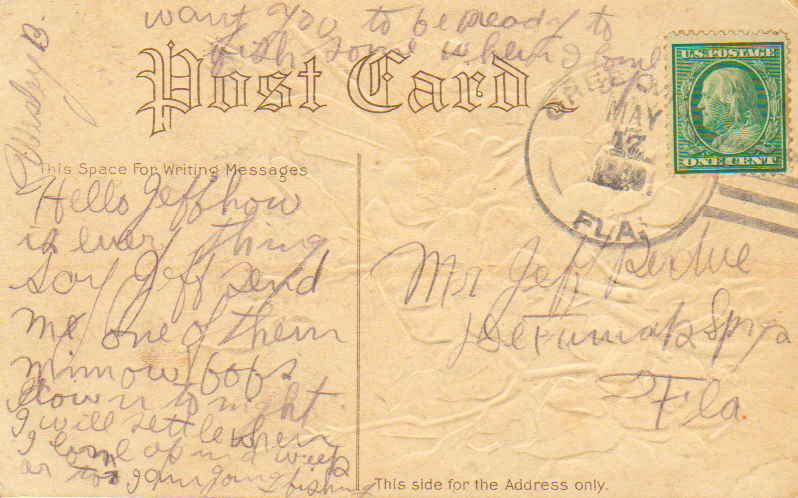 want you to be ready to
fish some where I come
Post Card
U.S. POSTAGE
ONE CENT
MAY
17
FLA.
Pursley B.
This Space For Writing Messages
Hello Jeff how
is every thing
say Jeff send
me one of them
minnow
down to night
I will settle when
I come up in a week
or to I am going fishing
Mr Jeff Perdue
DeFuniak Spgs
Fla.
This side for the Address only.